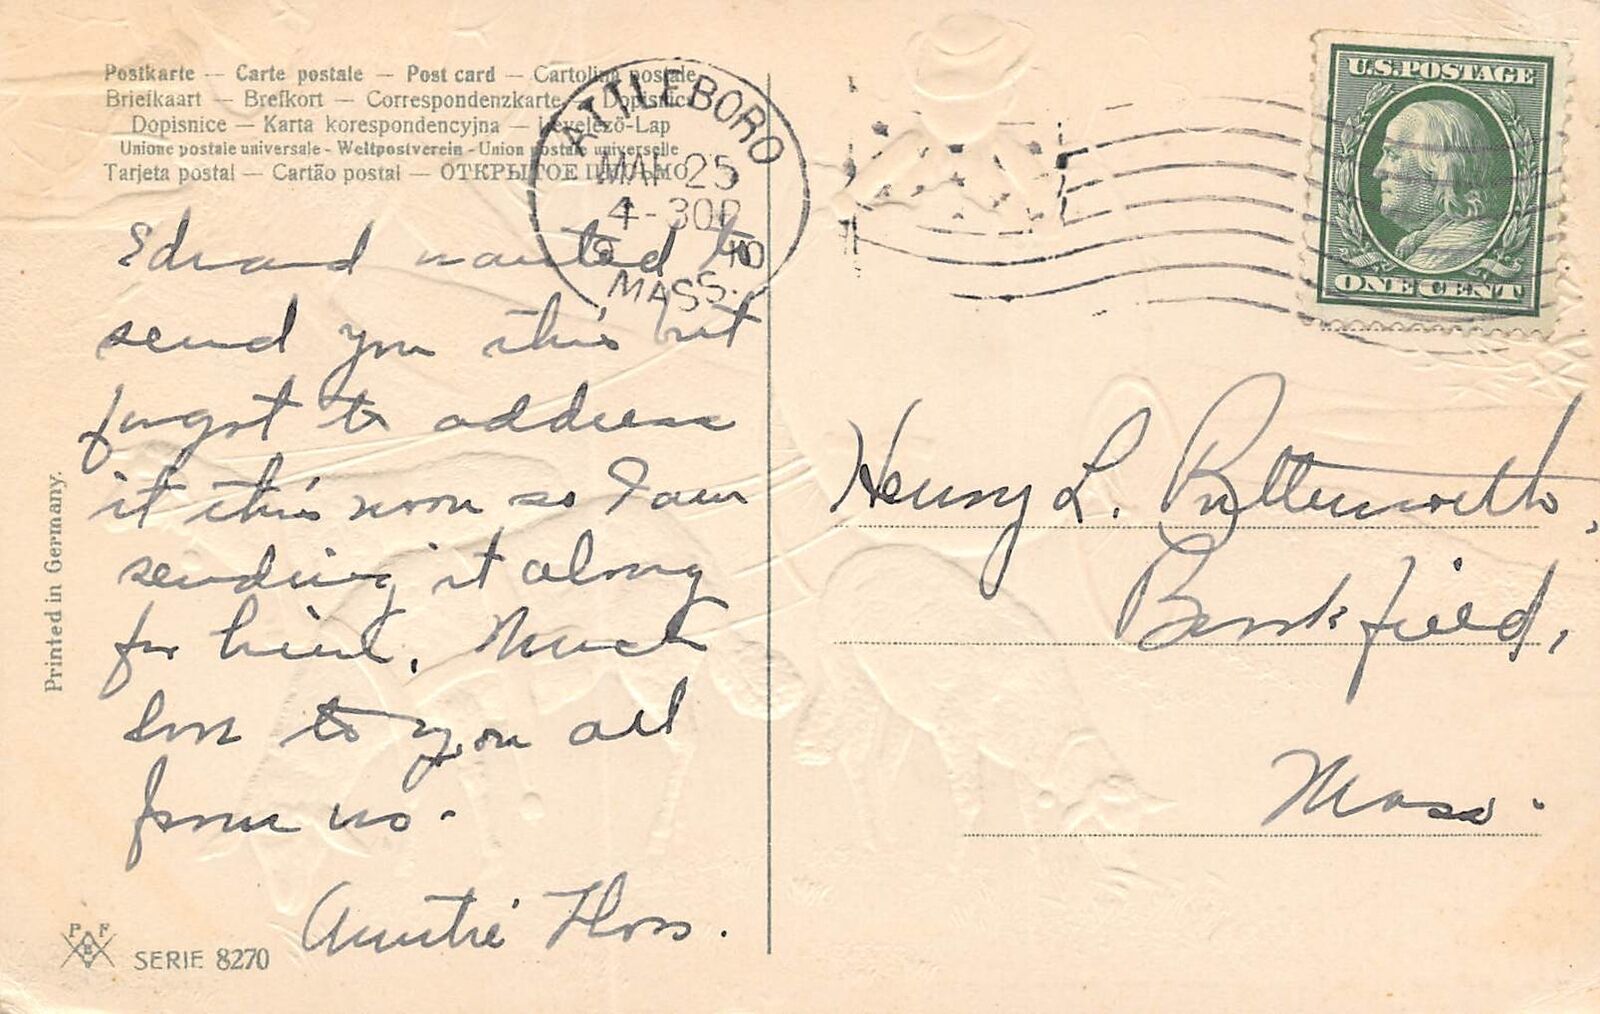 Postkarte — Carte postale — Post card — Cartolina postale
Briefkaart — Brefkort — Correspondenzkarte — Dopisnica
Dopisnice — Karta korespondencyjna — Levelező-Lap
Unione postale universale - Weltpostverein - Union postale universelle
Tarjeta postal — Cartão postal — ОТКРЫТОЕ ПИСЬМО
ATTLEBORO
MAR 25
4-30P
MASS.
U.S. POSTAGE
ONE CENT
Edward wanted to
send you this but
forgot to address
it this noon so I am
sending it along
for him. Much
love to you all
from us.
Auntie Floss.
Henry L. Butterworth,
Brookfield,
Mass.
Printed in Germany.
P F
B
SERIE 8270